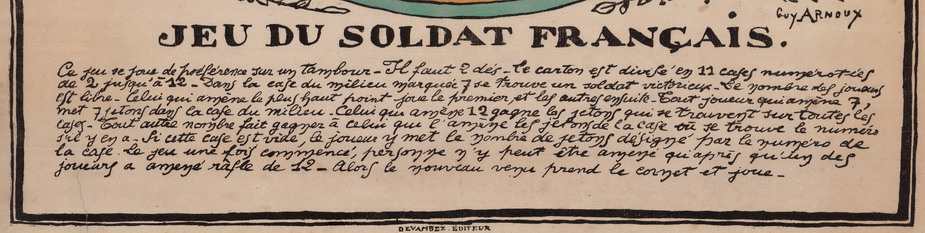 GUY ARNOUX
JEU DU SOLDAT FRANÇAIS.
Ce jeu se joue de préférence sur un tambour - Il faut 2 dés - le carton est divisé en 11 cases numérotées
de 2 jusqu'à 12 - Dans la case du milieu marquée 7 se trouve un soldat victorieux - Le nombre des joueurs
est libre - Celui qui amène le plus haut point joue le premier et les autres ensuite - Tout joueur qui amène 7,
met 7 jetons dans la case du milieu - Celui qui amène 12 gagne les jetons qui se trouvent sur toutes les
cases - Tout autre nombre fait gagner à celui qui l'amène les jetons de la case où se trouve le numéro
s'il y en a. Si cette case est vide, le joueur y met le nombre de jetons désigné par le numéro de
la case. Le jeu une fois commencé, personne n'y peut être amené qu'après qu'un des
joueurs a amené rafle de 12 - Alors le nouveau venu prend le cornet et joue -
DEVAMBEZ. EDITEUR